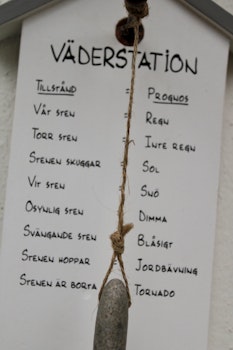 VÄDERSTATION
TILLSTÅND = PROGNOS
VÅT STEN = REGN
TORR STEN = INTE REGN
STENEN SKUGGAR = SOL
VIT STEN = SNÖ
OSYNLIG STEN = DIMMA
SVÄNGANDE STEN BLÅSIGT
STENEN HOPPAR JORDBÄVNING
STENEN ÄR BORTA TORNADO